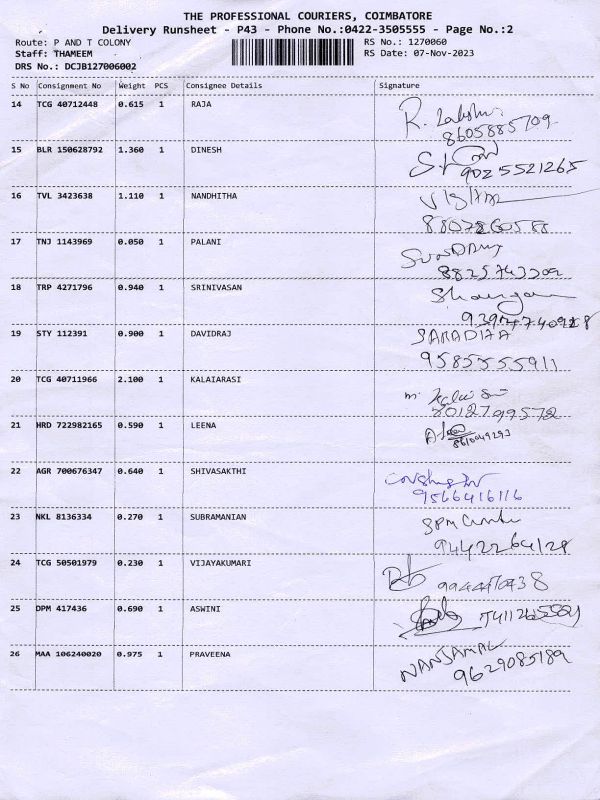 THE PROFESSIONAL COURIERS, COIMBATORE
Delivery Runsheet - P43 - Phone No.:0422-3505555 - Page No.:2
Route: P AND T COLONY RS No.: 1270060
Staff: THAMEEM RS Date: 07-Nov-2023
DRS No.: DCJB127006002
S No Consignment No Weight PCS Consignee Details Signature
14 TCG 40712448 0.615 1 RAJA R.
8605885709
15 BLR 150628792 1.360 1 DINESH
9025521265
16 TVL 3423638 1.110 1 NANDHITHA
17 TNJ 1143969 0.050 1 PALANI
18 TRP 4271796 0.940 1 SRINIVASAN
19 STY 112391 0.900 1 DAVIDRAJ
9585555911
20 TCG 40711966 2.100 1 KALAIARASI
8012799572
21 HRD 722982165 0.590 1 LEENA
22 AGR 700676347 0.640 1 SHIVASAKTHI
9566416116
23 NKL 8136334 0.270 1 SUBRAMANIAN
9442264128
24 TCG 50501979 0.230 1 VIJAYAKUMARI
25 DPM 417436 0.690 1 ASWINI
26 MAA 106240020 0.975 1 PRAVEENA NANJAMAL
9629085189